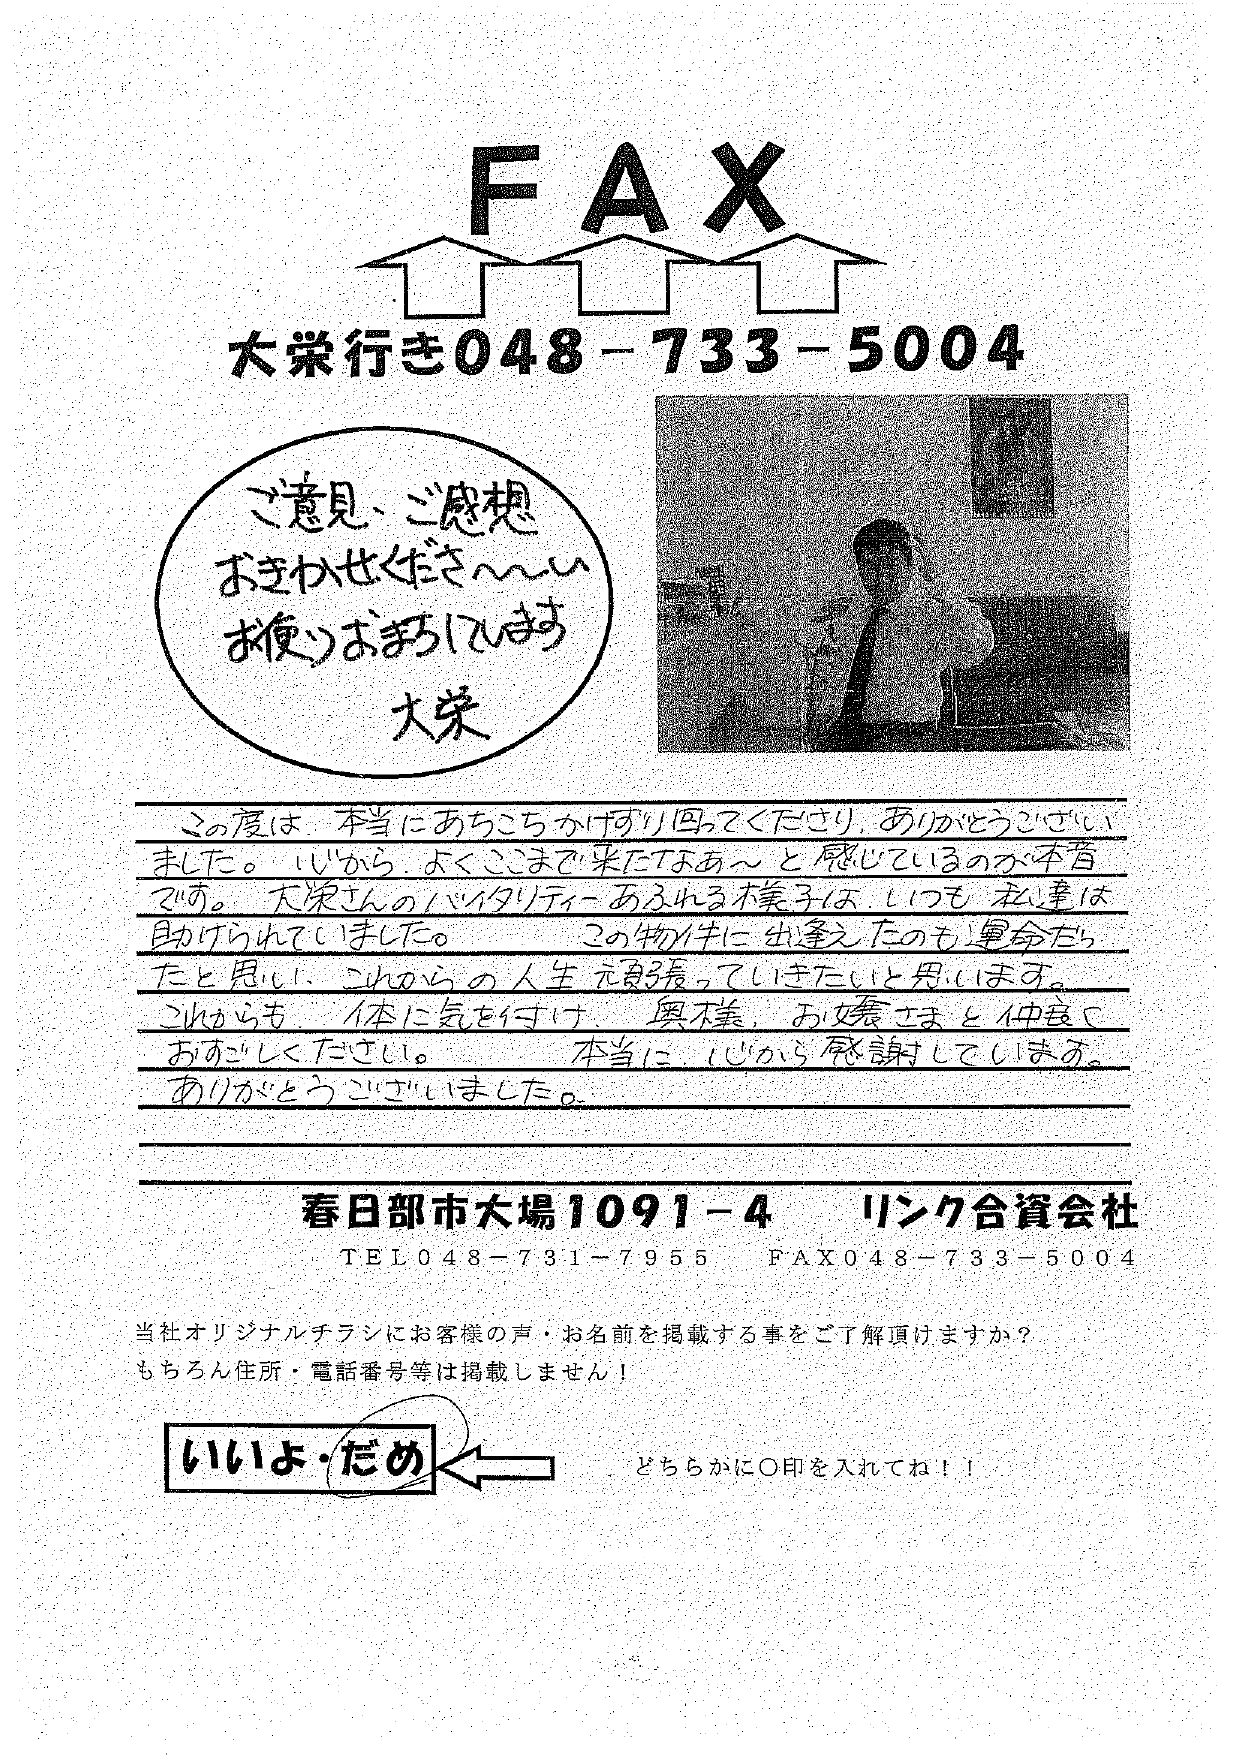 FAX
大栄行き048－733－5004
ご意見、ご感想
おきかせくださ～～い
お便りおまちしています
大栄
この度は、本当にあちこちかけずり回ってくださり、ありがとうござい
ました。心から、よくここまで来たなぁ～と感じているのが本音
です。大栄さんのバイタリティーあふれる様子は、いつも私達は
助けられていました。この物件に出逢えたのも運命だっ
たと思い、これからの人生頑張っていきたいと思います。
これからも、体に気を付け、奥様、お嬢さまと仲良く
おすごしください。本当に、心から感謝しています。
ありがとうございました。
春日部市大場1091－4 リンク合資会社
TEL048－731－7955 FAX048－733－5004
当社オリジナルチラシにお客様の声・お名前を掲載する事をご了解頂けますか？
もちろん住所・電話番号等は掲載しません！
いいよ・だめ
どちらかに○印を入れてね！！